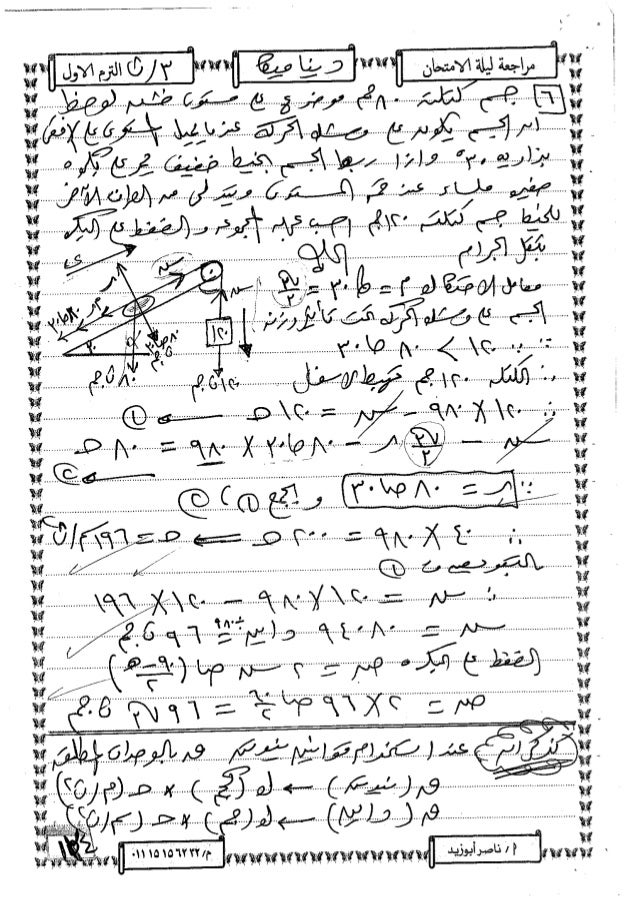 مراجعة ليلة الامتحان
ديناميكا
٣/ث الترم الاول
٦ جسم كتلته ٨٠ جم موضوع على مستوى خشن لوحظ
أن الجسم يكون على وشك الحركة عندما يميل المستوى على الأفقى
بزاوية ٣٠° وإذا ربط الجسم بخيط خفيف يمر على بكرة
صغيرة ملساء عند قمة المستوى ويتدلى من الطرف الآخر
للخيط جسم كتلته ١٢٠ جم احسب عجلة المجموعة والضغط على البكرة
بثقل الجرام
الحل
معامل الاحتكاك م = طا ٣٠ =
الجسم على وشك الحركة تحت تأثير وزنه
∵ ١٢٠ > ٨٠ حا ٣٠
∴ الكتلة ١٢٠ جم تهبط لاسفل
∴ ١٢٠ × ٩٨٠ - سہ = ١٢٠ حـ ← ①
٨٠ حا ٣٠ × ٩٨٠ = ٨٠ حـ
← ②
و بجمع ① ، ②
∴ ٤٠ × ٩٨٠ = ٢٠٠ حـ ← حـ = ١٩٦ سم/ث٢
بالتعويض فى ①
∴ سہ = ١٢٠ × ٩٨٠ - ١٢٠ × ١٩٦
سہ = ٩٤٠٨٠ داين ÷ ٩٨٠ = ٩٦ ث.جم
الضغط على البكرة ضہ = ٢ سہ حتا (٩٠ - هـ / ٢)
ضہ = ٢ × ٩٦ حتا ٦٠/٢ = ٩٦ √٣ ث.جم
تذكر أنه عند استخدام قوانين نيوتن ق بالوحدات المطلقة
ق (نيوتن) ← ك (كجم) × حـ (م/ث٢)
ق (داين) ← ك (جم) × حـ (سم/ث٢)
أ/ ناصر أبوزيد
م/ ٠١١١٥١٥٦٢٣٢